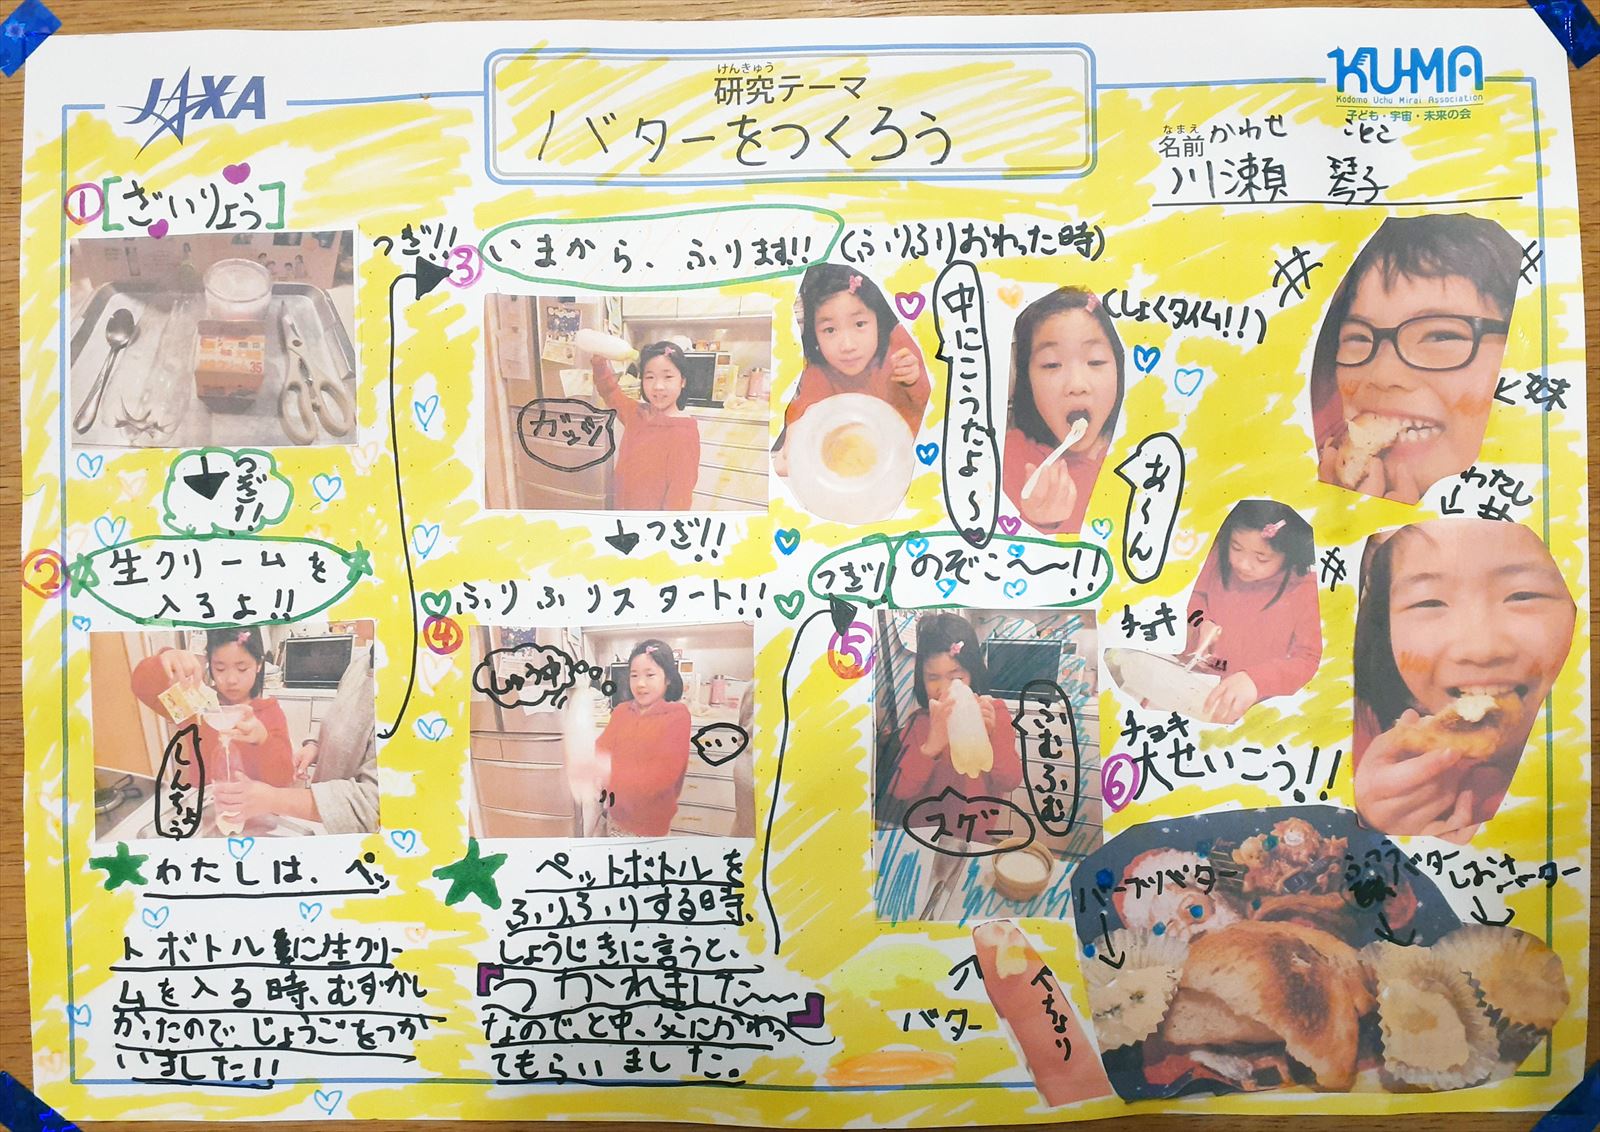 JAXA
けんきゅう
研究テーマ
バターをつくろう
KU-MA
Kodomo Uchu Mirai Association
子ども・宇宙・未来の会
なまえ かわせ ことこ
名前 川瀬 琴子
①[ざいりょう]
35
↓つぎ!!
②生クリームを
入るよ!!
しんちょう
★わたしは、ペッ
トボトルに生クリー
ムを入る時、むずかし
かったので、じょうごをつか
いました!!
つぎ!!
③いまから、ふります!!
(ふりふりおわった時)
ガッツ
中にこうたよ〜
(しょくタイム!!)
あ〜ん
↓つぎ!!
④ふりふりスタート!!
しゅう中
...
★ペットボトルを
ふりふりする時、
しょうじきに言うと、
「つかれました〜」
なので、と中、父にかわっ
てもらいました。
つぎ!!
⑤のぞこ〜!!
ふむふむ
スゲー
バター
ぺちょり
チョキ
チョキ
⑥大せいこう!!
妹
わたし
ハーブバター
バター
しおバター